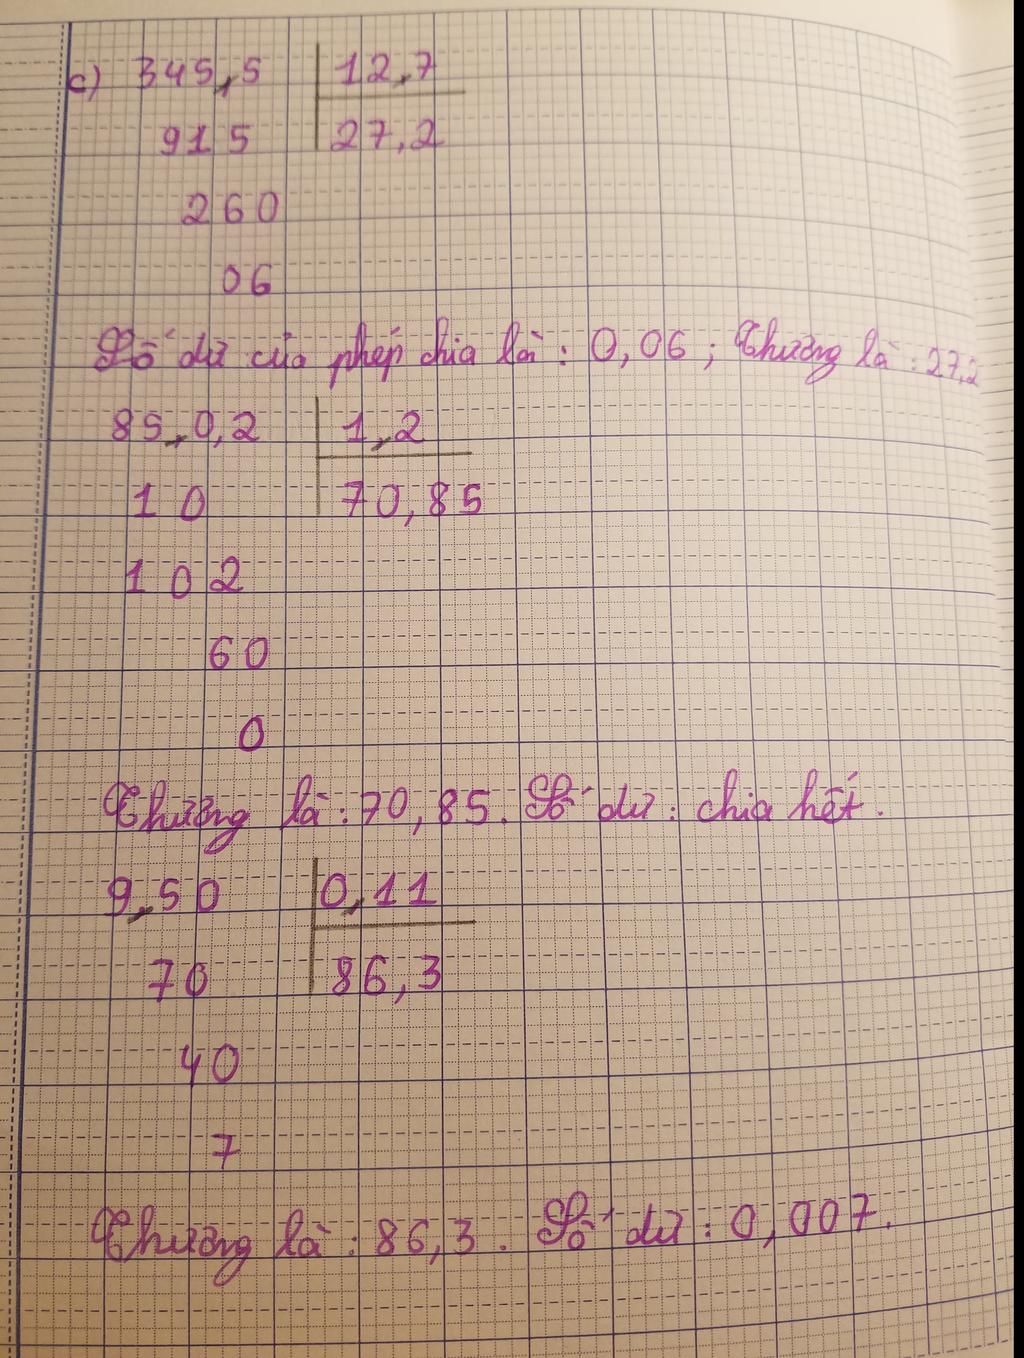 c) 345,5 12,7
915 27,2
260
06
Số dư của phép chia là : 0,06 ; Thương là : 27,2
85,0,2 1,2
10 70,85
102
60
0
Thương là : 70,85. Số dư : chia hết.
9,50 0,11
70 86,3
40
7
Thương là : 86,3. Số dư : 0,007.